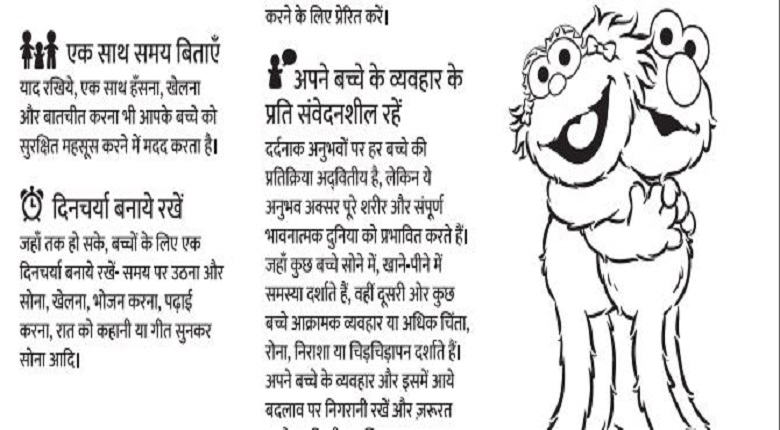 एक साथ समय बिताएँ
याद रखिये, एक साथ हँसना, खेलना
और बातचीत करना भी आपके बच्चे को
सुरक्षित महसूस करने में मदद करता है।
दिनचर्या बनाये रखें
जहाँ तक हो सके, बच्चों के लिए एक
दिनचर्या बनाये रखें- समय पर उठना और
सोना, खेलना, भोजन करना, पढ़ाई
करना, रात को कहानी या गीत सुनकर
सोना आदि।
करने के लिए प्रेरित करें।
अपने बच्चे के व्यवहार के
प्रति संवेदनशील रहें
दर्दनाक अनुभवों पर हर बच्चे की
प्रतिक्रिया अद्वितीय है, लेकिन ये
अनुभव अक्सर पूरे शरीर और संपूर्ण
भावनात्मक दुनिया को प्रभावित करते हैं।
जहाँ कुछ बच्चे सोने में, खाने-पीने में
समस्या दर्शाते हैं, वहीं दूसरी ओर कुछ
बच्चे आक्रामक व्यवहार या अधिक चिंता,
रोना, निराशा या चिड़चिड़ापन दर्शाते हैं।
अपने बच्चे के व्यवहार और इसमें आये
बदलाव पर निगरानी रखें और ज़रूरत